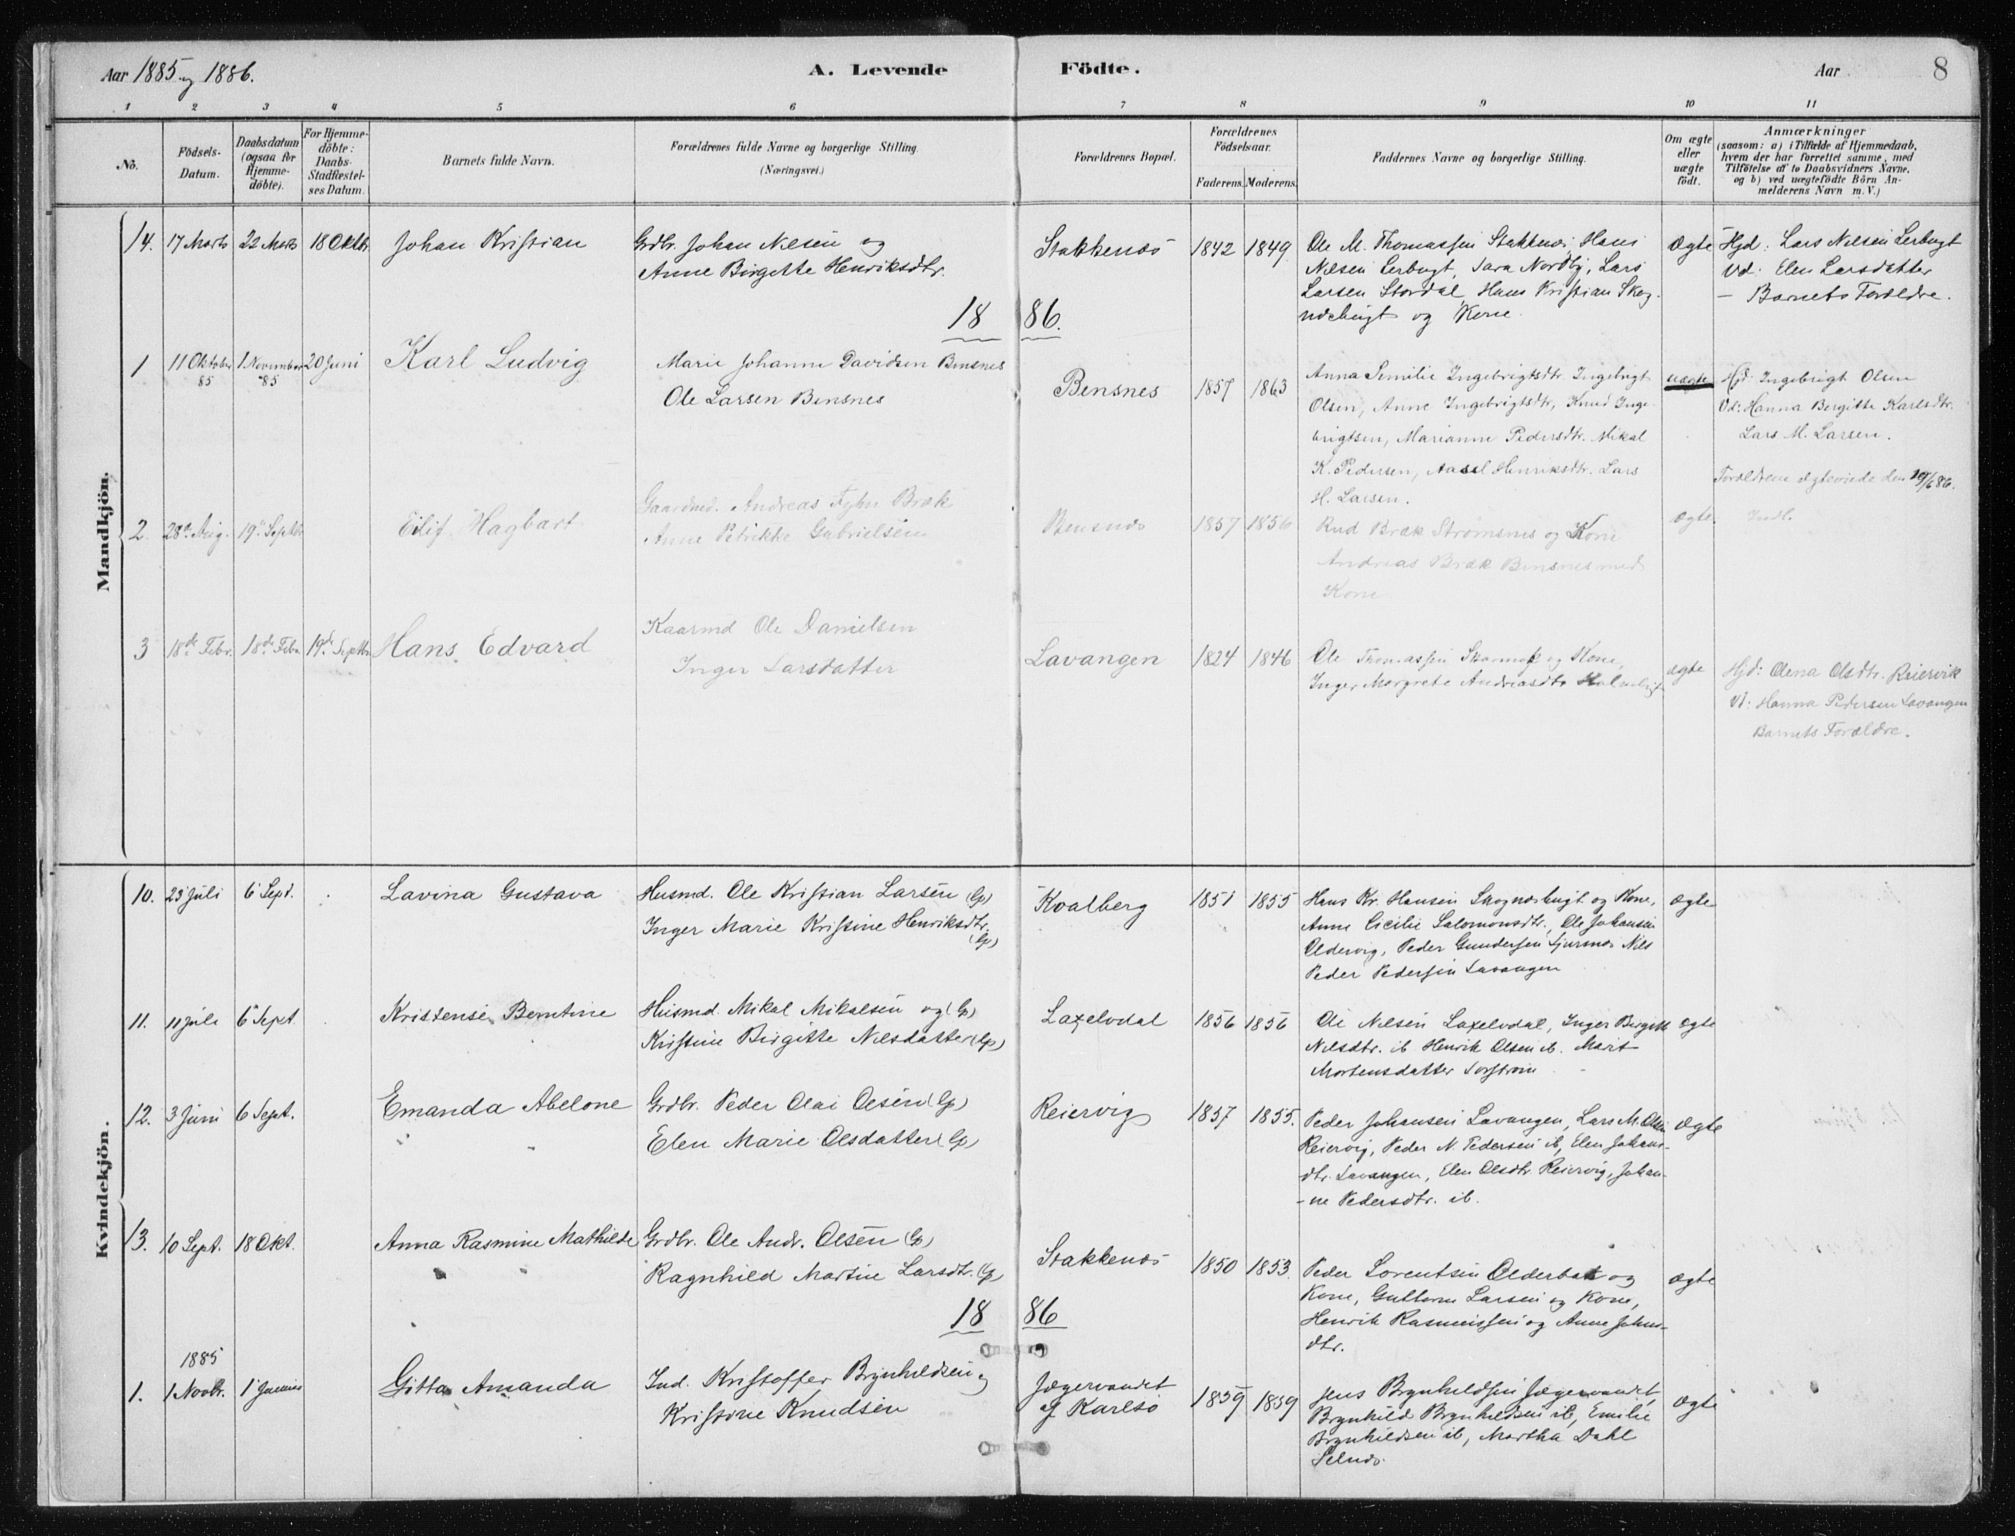 Aar 1885 og 1886.
A. Levende Födte.
Aar
8
1 2 3 4 5 6 7 8 9 10 11
No.
Födsels-Datum.
Daabsdatum (ogsaa for Hjemme-döbte).
For Hjemme-döbte: Daabs-Stadfæstel-ses Datum.
Barnets fulde Navn.
Forældrenes fulde Navne og borgerlige Stilling.
(Næringsvei.)
Forældrenes Bopæl.
Forældrenes Födselsaar.
Faderens. Moderens.
Faddernes Navne og borgerlige Stilling.
Om ægte eller uægte födt.
Anmærkninger
(saasom: a) i Tilfælde af Hjemmedaab,
hvem der har forrettet samme, med
Tilföielse af to Daabsvidners Navne,
og b) ved uægtefödte Börn An-
melderens Navn m. V.)
Mandkjön.
14. 17 Marts 22 Marts 18 Oktbr Johan Kristian Grdbr. Johan Nilsen og Stakkenæs 1842 1849 Ole M. Thomassen Stakkenæs Hans ægte Hjd: Lars Nilsen Lerbugt
Anne Birgitte Henriksdtr. Nilsen Lerbugt, Sara Nordbj, Lars Vd: Elen Larsdatter
Larsen Stordal, Hans Kristian Skog- – Barnets Forældre.
næsbugt og Kone.
18 86.
1 11 Oktober 85 1 November 85 20 Juni Karl Ludvig Marie Johanne Davidsen Bensnes Bensnes 1857 1863 Anna Emilie Ingebrigtsdtr. Ingebrigt uægte Hjd: Ingebrigt Olsen
Ole Larsen Bensnes Olsen, Anne Ingebrigtsdtr, Knud Inge- Vd: Hanna Bergitte Karlsdtr.
brigtsen, Marianne Pedersdtr. Mikal Lars M. Larsen.
K. Pedersen, Aasel Henriksdtr. Lars Forældrene ægteviede den 20/6 86.
H. Larsen.
2 28de Aug. 19de Septbr Eilif Hagbart Gaardmd. Andreas Fyhn Bræk Bensnæs 1857 1856 Rud Bræk Strømsnes og Kone ægte. Indl.
Anne Petrikke Gabrielsen Andreas Bræk Bensnes med
Kone
3 18de Febr. 18de Febr. 19de Septbr Hans Edvard Kaarmd Ole Danielsen Lavangen 1824 1846 Ole Thomassen og Kone, ægte Hjd: Olena Olsdtr. Reiervik
Inger Larsdatter Inger Margrete Andreasdtr Vd: Hanna Pedersen Lavangen
Barnets Forældre.
Kvindekjön.
10. 23 Juli 6 Sept. Lavina Gustava Husmd. Ole Kristian Larsen (Gp) Kvalberg 1851 1855 Hans Kr. Hansen Skognæsbugt og Kone, ægte
Inger Marie Kristine Henriksdtr. (Gp) Anne Cicilie Salomonsdtr, Ole Johansen
Oldervig, Peder Gundersen Sjursnæs Nils
Peder Pedersen Lavangen
11. 11 Juli 6 Sept. Kristensi Berntine Husmd. Mikal Mikalsen og (Gp) Laxelvdal 1856 1856 Ole Nilsen Laxelvdal, Inger Birgitt ægte
Kristine Birgitte Nilsdatter (Gp) Nilsdtr. ib. Henrik Olsen ib. Marit
Mortensdatter Sorstrøm
12. 3 Juni 6 Sept. Emanda Abelone Grdbr. Peder Olai Olsen (Gp) Reiervig 1857 1855. Peder Johansen Lavangen, Lars M. Olsen ægte
Elen Marie Olsdatter (Gp) Reiervig, Peder N. Pedersen ib, Elen Johans-
dtr. Lavangen, Elen Olsdtr. Reiervig, Johan-
-ne Pedersdtr. ib.
13. 10 Sept. 18 Okt. Anna Rasmine Mathilde Grdbr. Ole Andr. Olsen (Gp) Stakkenæs 1850 1853 Peder Lorentsen Olderbak og ægte
Ragnhild Martine Larsdtr. (Gp) Kone, Guttorm Larsen og Kone,
Henrik Rasmussen og Anne Johns-
dtr.
18 86
1. 1885 1 Novbr. 1 Januar Gitta Amanda Ind. Kristoffer Brynhildsen og Jægervandet 1859 1859 Jens Brynhildsen Jægervandet, ægte
Kristine Knudsen af Karlsö Brynhild Brynhildsen ib, Emilie
Brynhildsen ib, Martha Dahl
Selnæs